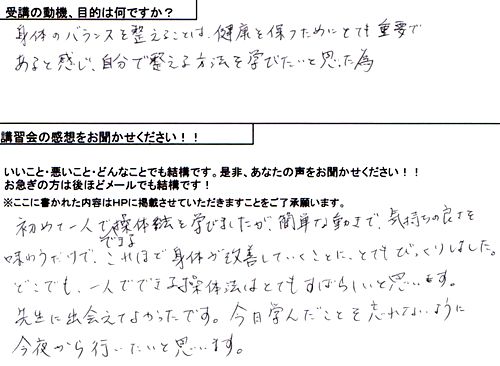 受講の動機、目的は何ですか？
身体のバランスを整えることは、健康を保つためにとても重要で
あると感じ、自分で整える方法を学びたいと思った為
講習会の感想をお聞かせください！！
いいこと・悪いこと・どんなことでも結構です。是非、あなたの声をお聞かせください！！
お急ぎの方は後ほどメールでも結構です！
※ここに書かれた内容はHPに掲載させていただきますことをご了承願います。
初めて一人でできる操体法を学びましたが、簡単な動きで、気持ちの良さを
味わうだけで、これほど身体が改善していくことに、とてもびっくりしました。
どこでも、一人でできる操体法はとてもすばらしいと思います。
先生に出会えてよかったです。今日学んだことを忘れないように
今夜から行いたいと思います。